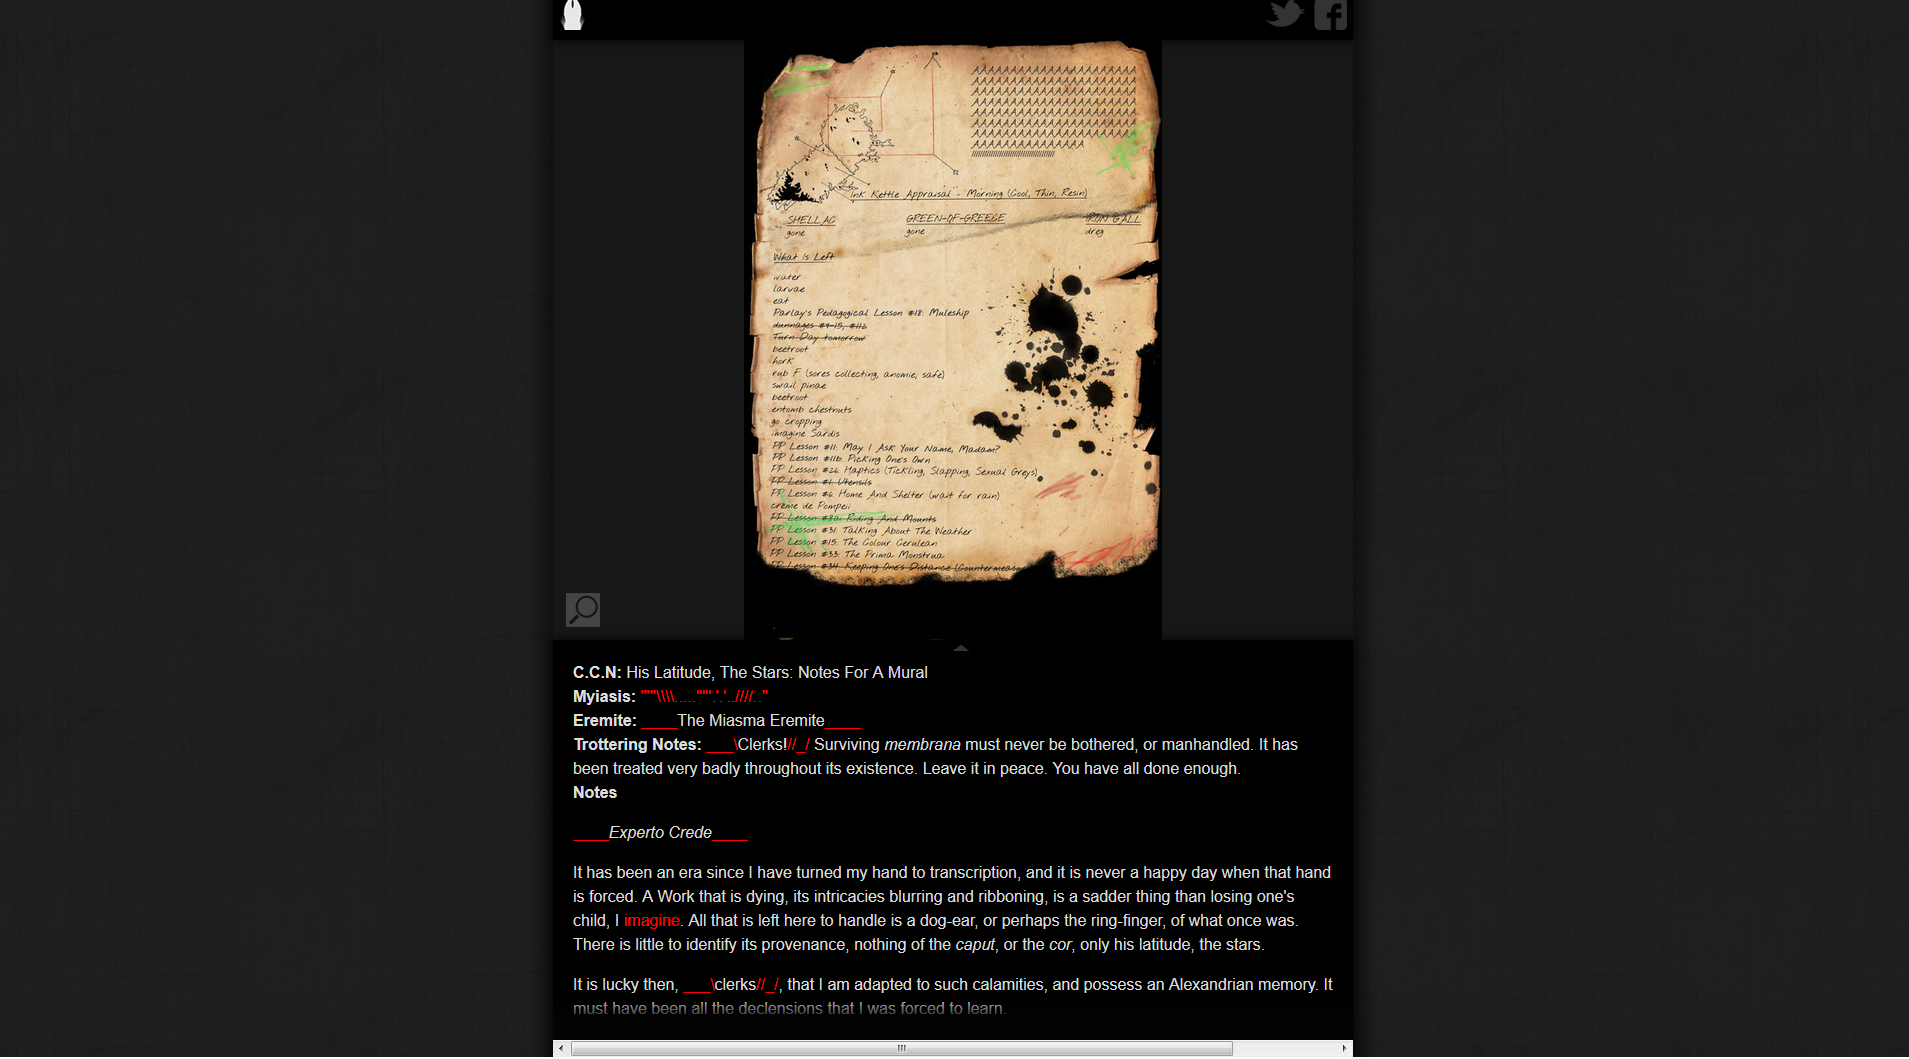 Ink Kettle Appraisal - Morning (Cool, Thin, Resin)
SHELLAC GREEN-OF-GREECE IRON GALL
gone gone dreg
What Is Left
water
larvae
eat
Parlay's Pedagogical Lesson #18: Muleship
dunnages #9-15, #112
Turn Day tomorrow
beetroot
hork
rub F (sores collecting, anomie, safe)
swail pinae
beetroot
entomb chestnuts
go cropping
imagine Sardis
PP Lesson #11: May I Ask Your Name, Madam?
PP Lesson #11b: Picking One's Own
PP Lesson #26: Haptics (Tickling, Slapping, Sexual Greys)
PP Lesson #1: Utensils
PP Lesson #6: Home And Shelter (wait for rain)
crème de Pompeii
PP Lesson #30: Riding And Mounts
PP Lesson #31: Talking About The Weather
PP Lesson #15: The Colour Cerulean
PP Lesson #33: The Prima Monstrua
PP Lesson #34: Keeping One's Distance (Countermeasu
C.C.N: His Latitude, The Stars: Notes For A Mural
Myiasis: """\\\\.....""'.'.'..////.."
Eremite: ____The Miasma Eremite____
Trottering Notes: ___\Clerks!//_/ Surviving membrana must never be bothered, or manhandled. It has
been treated very badly throughout its existence. Leave it in peace. You have all done enough.
Notes
____Experto Crede____
It has been an era since I have turned my hand to transcription, and it is never a happy day when that hand
is forced. A Work that is dying, its intricacies blurring and ribboning, is a sadder thing than losing one's
child, I imagine. All that is left here to handle is a dog-ear, or perhaps the ring-finger, of what once was.
There is little to identify its provenance, nothing of the caput, or the cor, only his latitude, the stars.
It is lucky then, ___\clerks//_/, that I am adapted to such calamities, and possess an Alexandrian memory. It
must have been all the declensions that I was forced to learn.